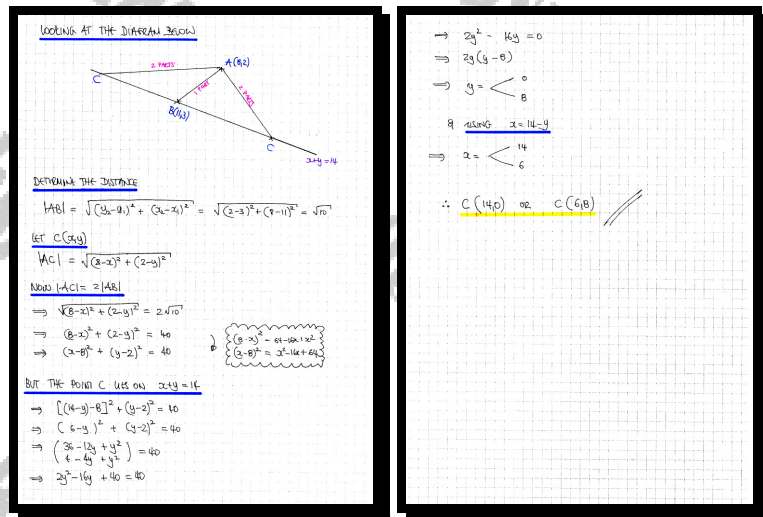 LOOKING AT THE DIAGRAM BELOW
2 PARTS
A(8,2)
C
1 PART
2 PARTS
B(11,3)
C
x+y=14
DETERMINE THE DISTANCE
|AB| = √(y₂-y₁)² + (x₂-x₁)² = √(2-3)² + (8-11)² = √10
LET C(x,y)
|AC| = √(8-x)² + (2-y)²
NOW |AC| = 2|AB|
⇒ √(8-x)² + (2-y)² = 2√10
⇒ (8-x)² + (2-y)² = 40
⇒ (x-8)² + (y-2)² = 40
(8-x)² = 64-16x+x²
(x-8)² = x²-16x+64
BUT THE POINT C LIES ON x+y=14
⇒ [(14-y)-8]² + (y-2)² = 40
⇒ (6-y)² + (y-2)² = 40
⇒ (36-12y+y²
4-4y+y²) = 40
⇒ 2y²-16y+40 = 40
⇒ 2y² - 16y = 0
⇒ 2y(y-8)
⇒ y = < 0
8
& USING x=14-y
⇒ x = < 14
6
∴ C(14,0) OR C(6,8)